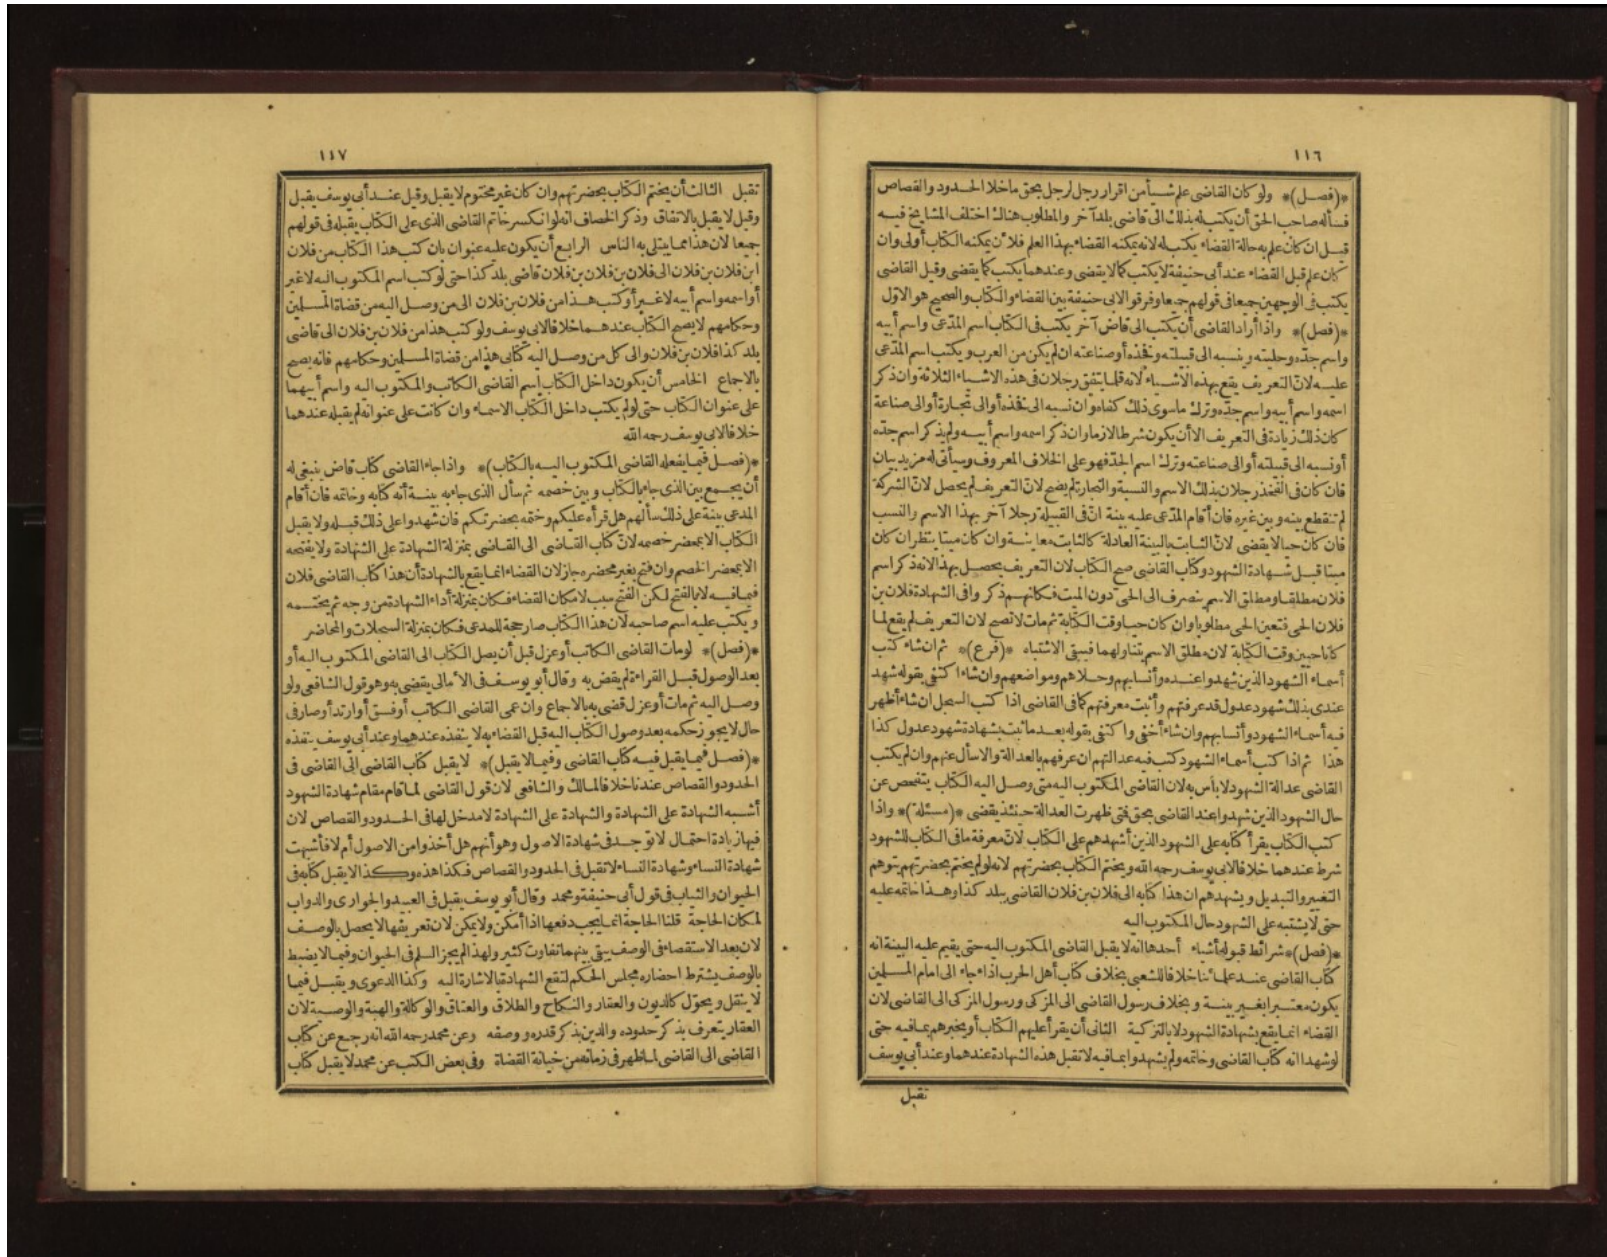 ١١٦
*(فصل)* ولو كان القاضى علم شيأ من اقرار رجل لرجل بحق ما خلا الحدود والقصاص
فسأله صاحب الحق أن يكتب له بذلك الى قاضى بلد آخر والمطلوب هناك اختلف المشايخ فيه
قيل ان كان علم به حالة القضاء يكتب له لانه يمكنه القضاء بهذا العلم فلأن يمكنه الكتاب أولى وان
كان علم قبل القضاء عند أبى حنيفة لا يكتب كما لا يقضى وعندهما يكتب كما يقضى وقيل القاضى
يكتب فى الوجهين جميعا فى قولهم جميعا وفرقوا لابى حنيفة بين القضاء والكتاب والصحيح هو الاول
*(فصل)* واذا أراد القاضى أن يكتب الى قاض آخر يكتب فى الكتاب اسم المدّعى واسم أبيه
واسم جدّه وحليته وينسبه الى قبيلته وفخذه أو صناعته ان لم يكن من العرب ويكتب اسم المدّعى
عليه لانّ التعريف يقع بهذه الأشياء لانه قلما يتفق رجلان فى هذه الاشياء الثلاثة وان ذكر
اسمه واسم أبيه واسم جدّه وترك ما سوى ذلك كفاه وان نسبه الى فخذه أو الى تجارة أو الى صناعة
كان ذلك زيادة فى التعريف الا أن يكون شرطا لازما وان ذكر اسمه واسم أبيه ولم يذكر اسم جدّه
أو نسبه الى قبيلته أو الى صناعته وترك اسم الجدّ فهو على الخلاف المعروف وسيأتى له مزيد بيان
فان كان فى الفخذ رجلان بذلك الاسم والنسبة والتجارة لم يصح لانّ التعريف لم يحصل لانّ الشركة
لم تنقطع بينه وبين غيره فان أقام المدّعى عليه بينة انّ فى القبيلة رجلا آخر بهذا الاسم والنسب
فان كان حيا لا يقضى لانّ الثابت بالبينة العادلة كالثابت معاينة وان كان ميتا ينظر ان كان
ميتا قبل شهادة الشهود وكتاب القاضى صح الكتاب لان التعريف يحصل بهذا لانه ذكر اسم
فلان مطلقا ومطلق الاسم ينصرف الى الحى دون الميت فكانهم ذكروا فى الشهادة فلان بن
فلان الحى فتعين الحى مطلوبا وان كان حيا وقت الكتابة ثم مات لا تصح لان التعريف لم يقع لما
كانا حيين وقت الكتابة لان مطلق الاسم يتناولهما فيبقى الاشتباه *(فرع)* ثم ان شاء كتب
أسماء الشهود الذين شهدوا عنده وأنسابهم وحلاهم ومواضعهم وان شاء اكتفى بقوله شهد
عندى بذلك شهود عدول قد عرفتهم وأثبت معرفتهم كما فى القاضى اذا كتب السجل ان شاء أظهر
فيه أسماء الشهود وأنسابهم وان شاء أخفى واكتفى بقوله بعد ما ثبت بشهادة شهود عدول كذا
هذا ثم اذا كتب أسماء الشهود كتب فيه عدالتهم ان عرفهم بالعدالة والا سأل عنهم وان لم يكتب
القاضى عدالة الشهود لا بأس به لان القاضى المكتوب اليه متى وصل اليه الكتاب يتفحص عن
حال الشهود الذين شهدوا عند القاضى بحق فتى ظهرت العدالة حينئذ يقضى *(مسئلة)* واذا
كتب الكتاب يقرأ كتابه على الشهود الذين أشهدهم على الكتاب لانّ معرفة ما فى الكتاب للشهود
شرط عندهما خلافا لابى يوسف رحمه الله ويختم الكتاب بحضرتهم لانه لو لم يختم بحضرتهم يتوهم
التغيير والتبديل ويشهدهم ان هذا كتابه الى فلان بن فلان القاضى ببلد كذا وهذا خاتمه عليه
حتى لا يشتبه على الشهود حال المكتوب اليه
*(فصل)* شرائط قبوله أشياء أحدها انه لا يقبل القاضى المكتوب اليه حتى يقيم عليه البينة انه
كتاب القاضى عند علمائنا خلافا للشعبى بخلاف كتاب أهل الحرب اذا جاء الى امام المسلمين
يكون معتبرا بغير بينة وبخلاف رسول القاضى الى المزكى ورسول المزكى الى القاضى لان
القضاء انما يقع بشهادة الشهود لا بالتزكية الثانى أن يقرأ عليهم الكتاب أو يخبرهم بما فيه حتى
لو شهدا انه كتاب القاضى وخاتمه ولم يشهدوا بما فيه لا تقبل هذه الشهادة عندهما وعند أبى يوسف
تقبل
١١٧
تقبل الثالث أن يختم الكتاب بحضرتهم وان كان غير مختوم لا يقبل وقيل عند أبى يوسف يقبل
وقيل لا يقبل بالاتفاق وذكر الخصاف انه لو انكسر خاتم القاضى الذى على الكتاب يقبله فى قولهم
جميعا لان هذا مما يبتلى به الناس الرابع أن يكون عليه عنوان بان كتب هذا الكتاب من فلان
ابن فلان بن فلان الى فلان بن فلان بن فلان قاضى بلد كذا حتى لو كتب اسم المكتوب اليه لا غير
أو اسمه واسم أبيه لا غير أو كتب هذا من فلان بن فلان الى من وصل اليه من قضاة المسلمين
وحكامهم لا يصح الكتاب عندهما خلافا لابى يوسف ولو كتب هذا من فلان بن فلان الى قاضى
بلد كذا فلان بن فلان والى كل من وصل اليه كتابى هذا من قضاة المسلمين وحكامهم فانه يصح
بالاجماع الخامس أن يكون داخل الكتاب اسم القاضى الكاتب والمكتوب اليه واسم أبيهما
على عنوان الكتاب حتى لو لم يكتب داخل الكتاب الاسماء وان كانت على عنوانه لم يقبله عندهما
خلافا لابى يوسف رحمه الله
*(فصل فيما يفعله القاضى المكتوب اليه بالكتاب)* واذا جاء القاضى كتاب قاض ينبغى له
أن يجمع بين الذى جاء بالكتاب وبين خصمه ثم سأل الذى جاء به بينة أنه كتابه وخاتمه فان أقام
المدعى بينة على ذلك سألهم هل قرأه عليكم وختمه بحضرتكم فان شهدوا على ذلك قبله ولا يقبل
الكتاب الا بمحضر خصمه لانّ كتاب القاضى الى القاضى بمنزلة الشهادة على الشهادة ولا يفتحه
الا بمحضر الخصم وان فتح بغير محضره جاز لان القضاء انما يقع بالشهادة أن هذا كتاب القاضى فلان
فيما فيه لا بالفتح لكن الفتح سبب لامكان القضاء فكان بمنزلة أداء الشهادة من وجه ثم يختمه
ويكتب عليه اسم صاحبه لان هذا الكتاب صار حجة للمدعى فكان بمنزلة السجلات والمحاضر
*(فصل)* لو مات القاضى الكاتب أو عزل قبل أن يصل الكتاب الى القاضى المكتوب اليه أو
بعد الوصول قبل القراءة لم يقض به وقال أبو يوسف فى الأمالى يقضى به وهو قول الشافعى ولو
وصل اليه ثم مات أو عزل قضى به بالاجماع وان عمى القاضى الكاتب أو فسق أو ارتد أو صار فى
حال لا يجوز حكمه بعد وصول الكتاب اليه قبل القضاء به لا ينفذه عندهما وعند أبى يوسف ينفذه
*(فصل فيما يقبل فيه كتاب القاضى وفيما لا يقبل)* لا يقبل كتاب القاضى الى القاضى فى
الحدود والقصاص عندنا خلافا لمالك والشافعى لان قول القاضى لما قام مقام شهادة الشهود
أشبه الشهادة على الشهادة والشهادة على الشهادة لا مدخل لها فى الحدود والقصاص لان
فيها زيادة احتمال لا توجد فى شهادة الاصول وهو أنهم هل أخذوا من الاصول أم لا فأشبهت
شهادة النساء وشهادة النساء لا تقبل فى الحدود والقصاص فكذا هذه وكذا لا يقبل كتابه فى
الحيوان والثياب فى قول أبى حنيفة ومحمد وقال أبو يوسف يقبل فى العبيد والجوارى والدواب
لمكان الحاجة قلنا الحاجة انما يجب دفعها اذا أمكن ولا يمكن لان تعريفها لا يحصل بالوصف
لان بعد الاستقصاء فى الوصف يبقى بينهما تفاوت كثير ولهذا لم يجز السلم فى الحيوان وفيما لا يضبط
بالوصف يشترط احضاره مجلس الحكم لتقع الشهادة بالاشارة اليه وكذا الدعوى ويقبل فيما
لا ينقل ويحوّل كالديون والعقار والنكاح والطلاق والعتاق والوكالة والهبة والوصية لان
العقار يتعرف بذكر حدوده والدين بذكر قدره ووصفه وعن محمد رحمه الله انه رجع عن كتاب
القاضى الى القاضى لما ظهر فى زمانه من خيانة القضاة وفى بعض الكتب عن محمد لا يقبل كتاب